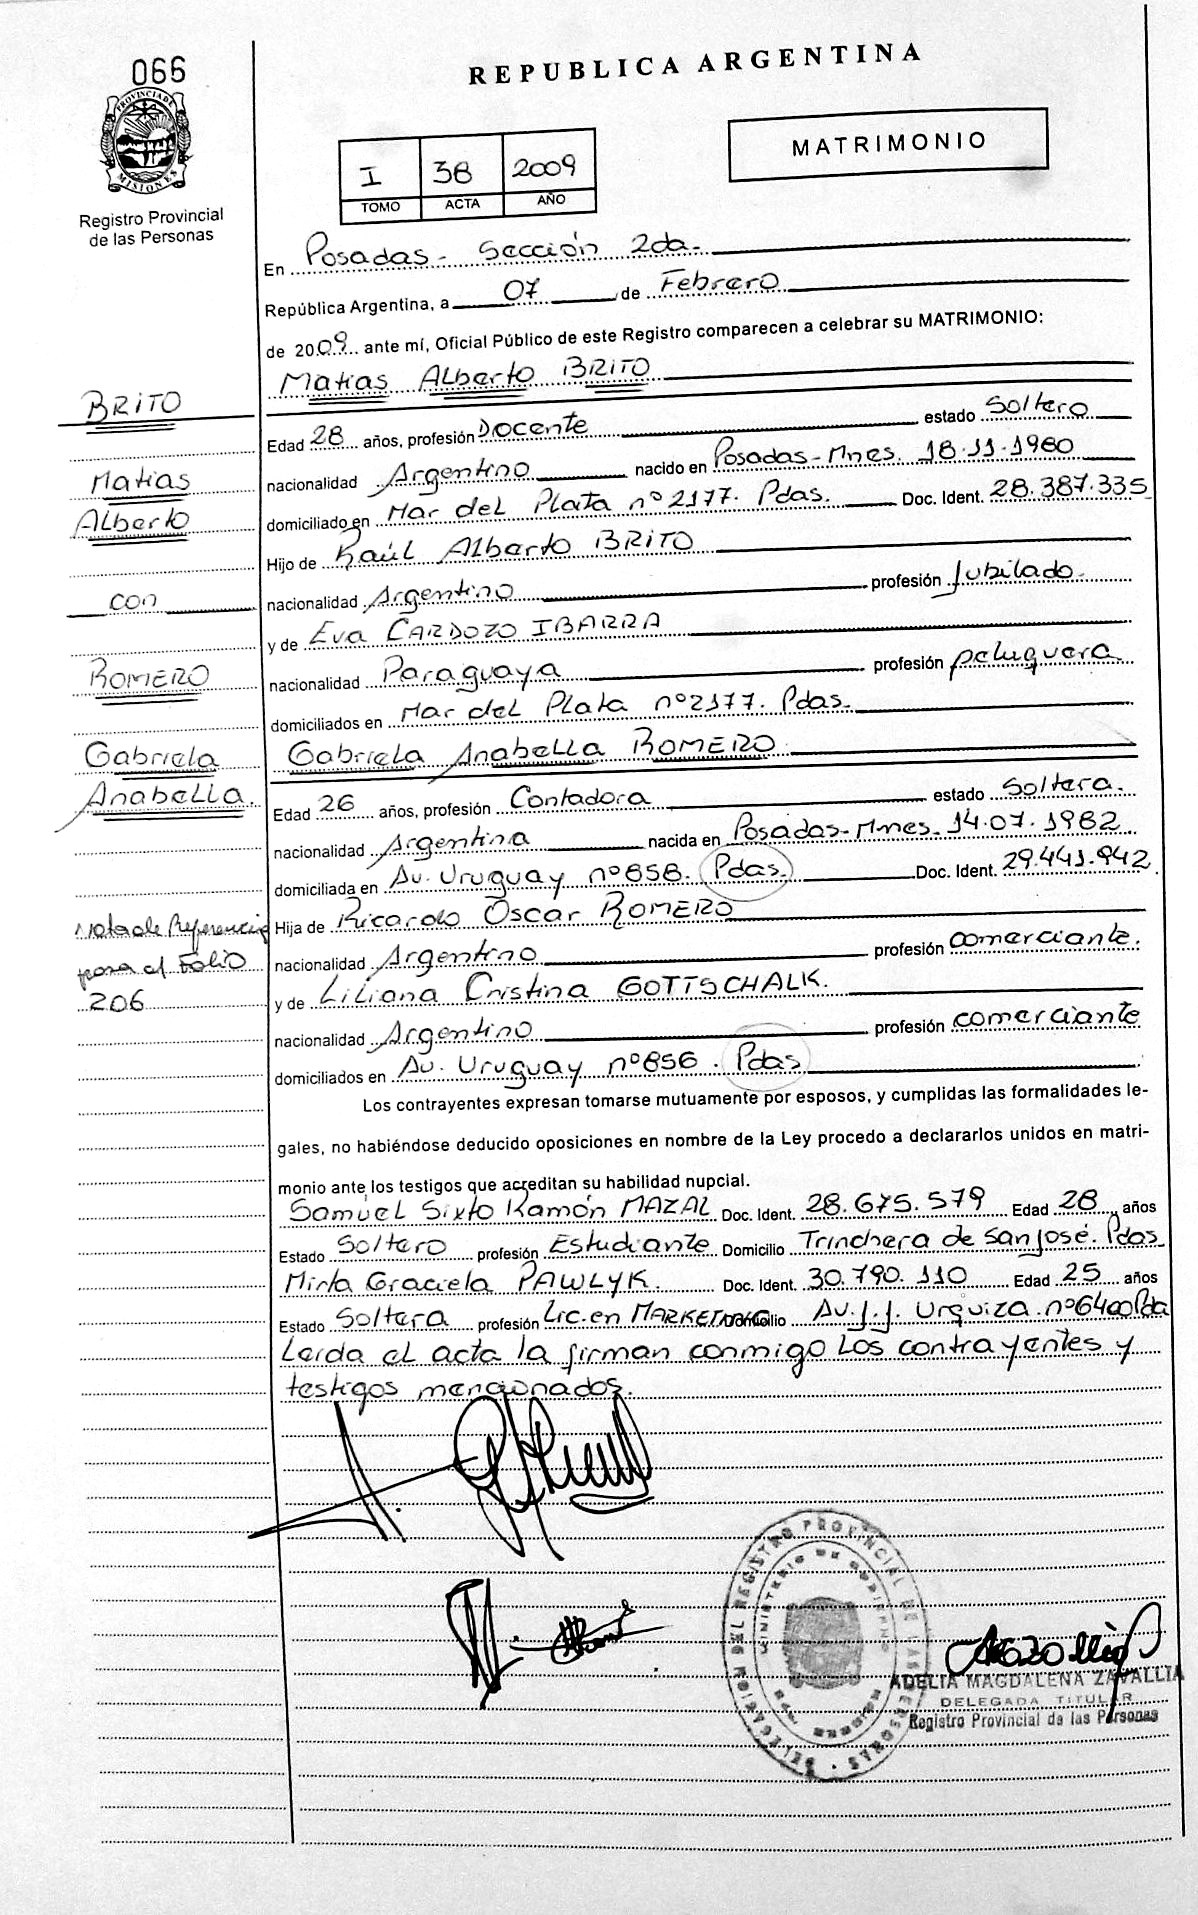 066
PROVINCIA DE
MISIONES
Registro Provincial
de las Personas
REPUBLICA ARGENTINA
MATRIMONIO
I 38 2009
TOMO ACTA AÑO
En Posadas - Sección 2da.
República Argentina, a 07 de Febrero
de 2009 ante mí, Oficial Público de este Registro comparecen a celebrar su MATRIMONIO:
Matias Alberto BRITO
BRITO
Edad 28 años, profesión Docente estado Soltero
Matias
nacionalidad Argentino nacido en Posadas-Mnes. 18.11.1980
Alberto
domiciliado en Mar del Plata nº 2177. Pdas. Doc. Ident. 28.387.335
Hijo de Raúl Alberto BRITO
con
nacionalidad Argentino profesión Jubilado.
y de Eva CARDOZO IBARRA
ROMERO
nacionalidad Paraguaya profesión peluquera
domiciliados en Mar del Plata nº 2177. Pdas.
Gabriela
Gabriela Anabella ROMERO
Anabella.
Edad 26 años, profesión Contadora estado Soltera.
nacionalidad Argentina nacida en Posadas-Mnes. 14.07.1982
domiciliada en Av. Uruguay nº 858. Pdas. Doc. Ident. 29.441.942
Nota de Referencia
Hija de Ricardo Oscar ROMERO
para el Folio
nacionalidad Argentino profesión comerciante.
206
y de Liliana Cristina GOTTSCHALK.
nacionalidad Argentino profesión comerciante
domiciliados en Av. Uruguay nº 856. Pdas
Los contrayentes expresan tomarse mutuamente por esposos, y cumplidas las formalidades le-
gales, no habiéndose deducido oposiciones en nombre de la Ley procedo a declararlos unidos en matri-
monio ante los testigos que acreditan su habilidad nupcial.
Samuel Sixto Ramón MAZAL Doc. Ident. 28.675.579 Edad 28 años
Estado Soltero profesión Estudiante Domicilio Trinchera de San José. Pdas
Mirta Graciela PAWLYK. Doc. Ident. 30.790.110 Edad 25 años
Estado Soltera profesión Lic. en MARKETING Domicilio Av. J.J. Urquiza nº 6400 Pda
Leida el acta la firman conmigo los contrayentes y
testigos mencionados.
DELEGACION DEL REGISTRO PROVINCIAL DE LAS PERSONAS
MINISTERIO DE GOBIERNO
MISIONES
ADELIA MAGDALENA ZAVALLIA
DELEGADA TITULAR
Registro Provincial de las Personas